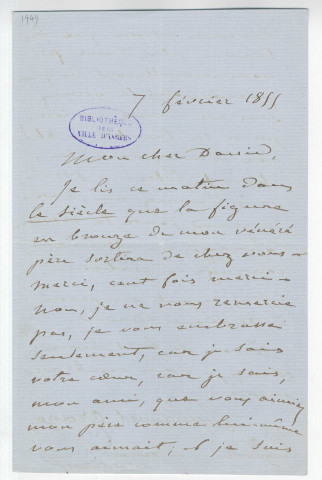 1949
7 février 1855
BIBLIOTHÈQUE
DE LA
VILLE D'ANGERS
Mon cher David,
Je lis ce matin dans
le Siècle que la figure
en bronze de mon vénéré
père sortira de chez vous -
merci, cent fois merci -
non, je ne vous remercie
pas, je vous embrasse
seulement, car je sais
votre cœur, car je sais,
mon ami, que vous aimiez
mon père comme lui-même
vous aimait ; et je suis